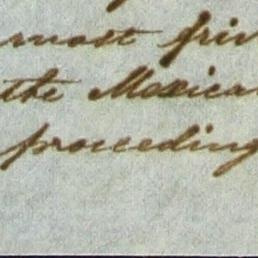 most friv
the Mexica
proceeding